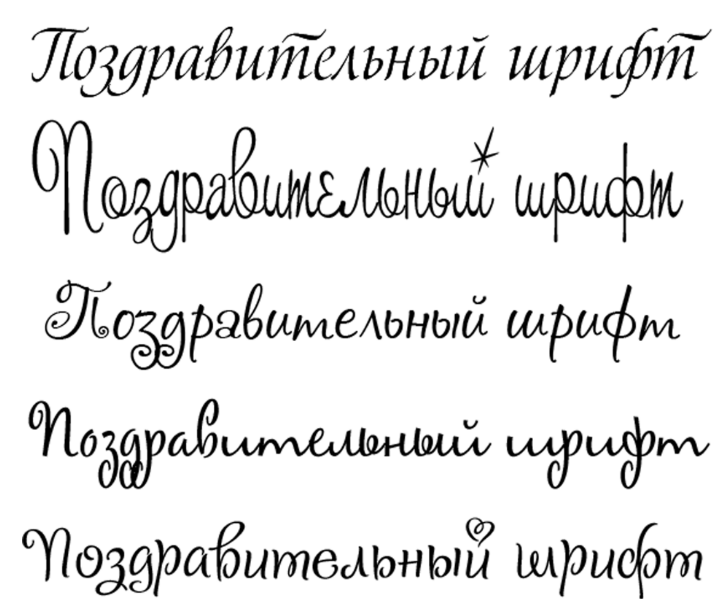 Поздравительный шрифт
Поздравительный шрифт
Поздравительный шрифт
Поздравительный шрифт
Поздравительный шрифт